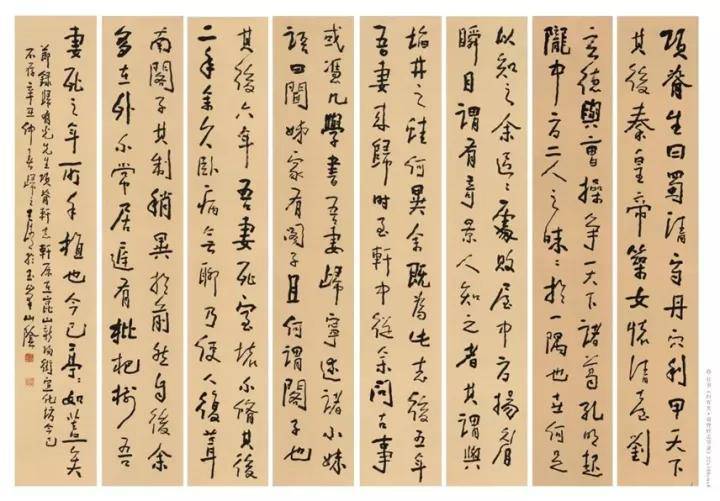 項脊生曰蜀清守丹穴利甲天下
其後秦皇帝築女懷清臺劉
玄德與曹操爭天下諸葛孔明起
隴中方二人之昧昧於一隅也世何足
以知之余區區處敗屋中方揚眉
瞬目謂有奇景人知之者其謂與
埳井之蛙何異余既為此志後五年
吾妻來歸時至軒中從余問古事
或憑几學書吾妻歸寧述諸小妹
語曰聞姊家有閣子且何謂閣子也
其後六年吾妻死室壞不脩其後
二年余久臥病無聊乃使人復葺
南閣子其制稍異於前然自後余
多在外不常居庭有枇杷樹吾
妻死之年所手植也今已亭亭如蓋矣
節錄歸有光先生項脊軒志軒原在崑山新陽街宣化坊今已
不存辛丑仲春歸之於玉峰山陰